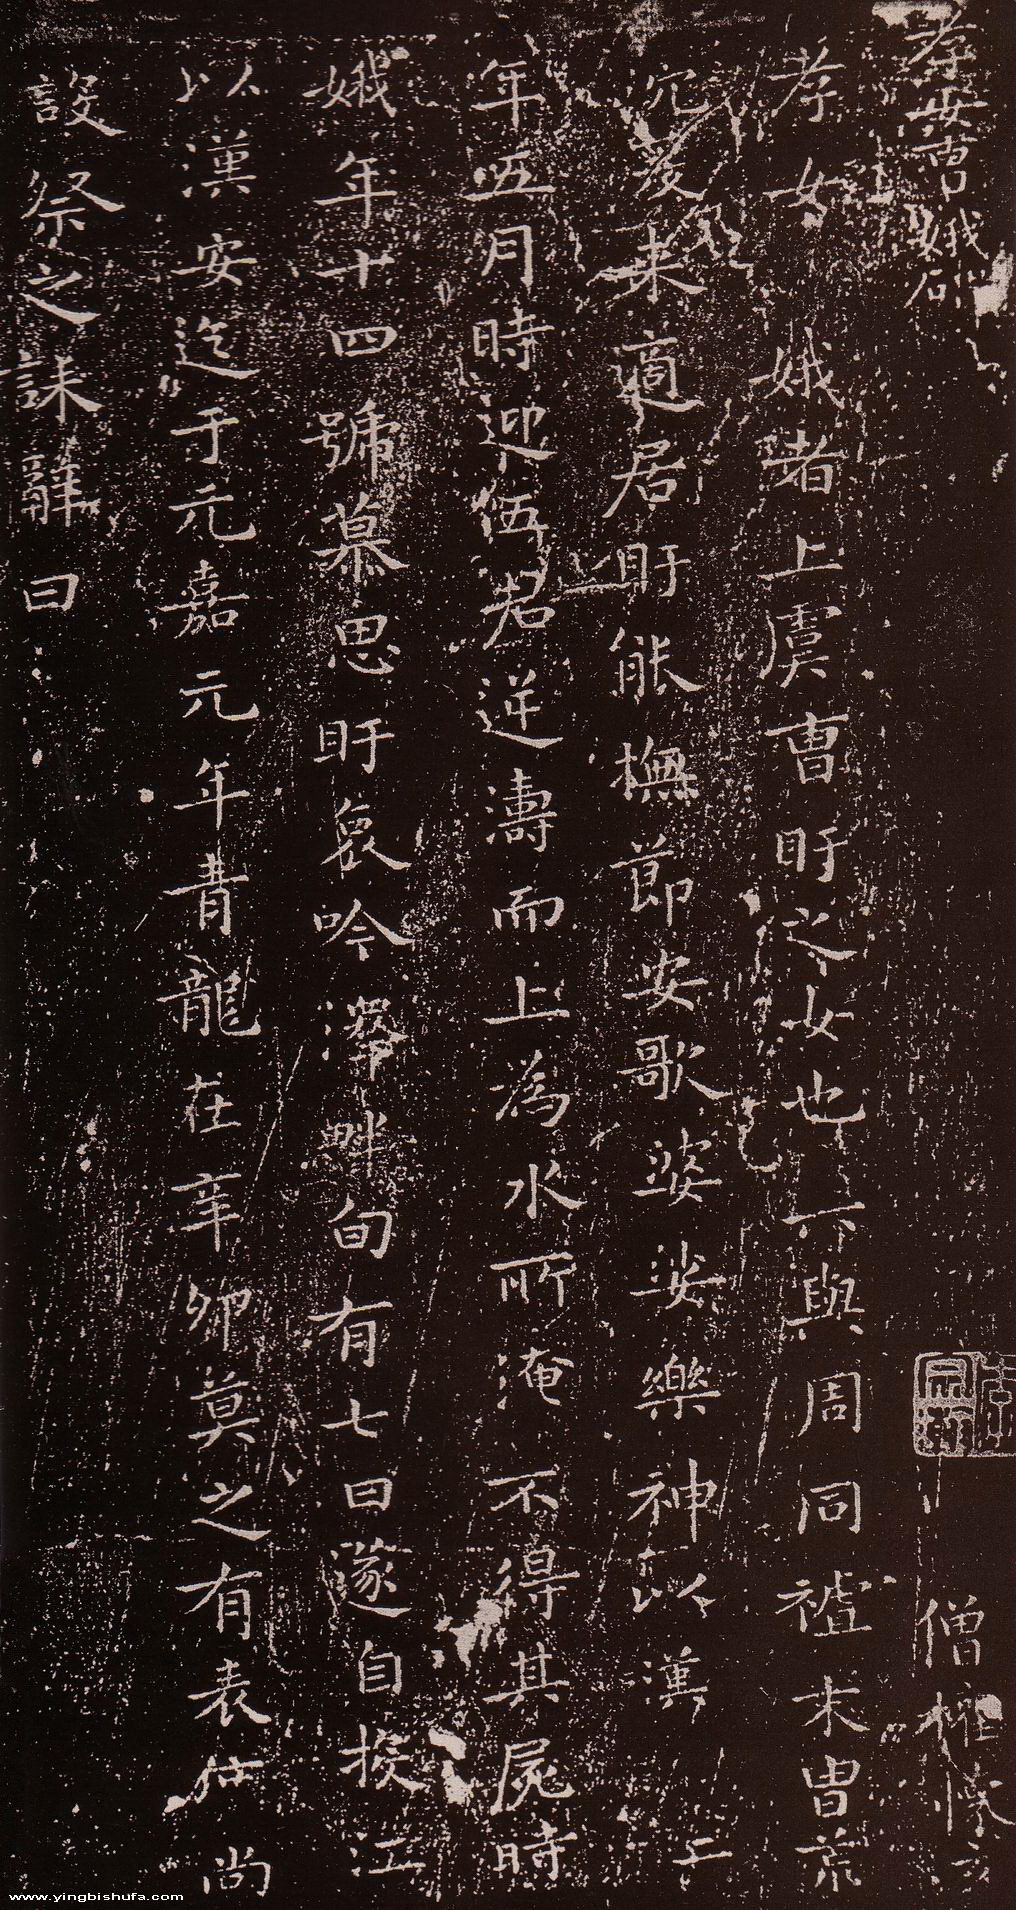 孝女曹娥碑
孝女娥者上虞曹盱之女也其先與周同祖末胄荒
沉爰來適居盱能撫節安歌婆娑樂神以漢安二
年五月時迎伍君逆濤而上為水所淹不得其屍時
娥年十四號慕思盱哀吟澤畔旬有七日遂自投江死經五日抱父屍出
以漢安迄于元嘉元年青龍在辛卯莫之有表度尚
設祭之誄辭曰
僧權
www.yingbishufa.com